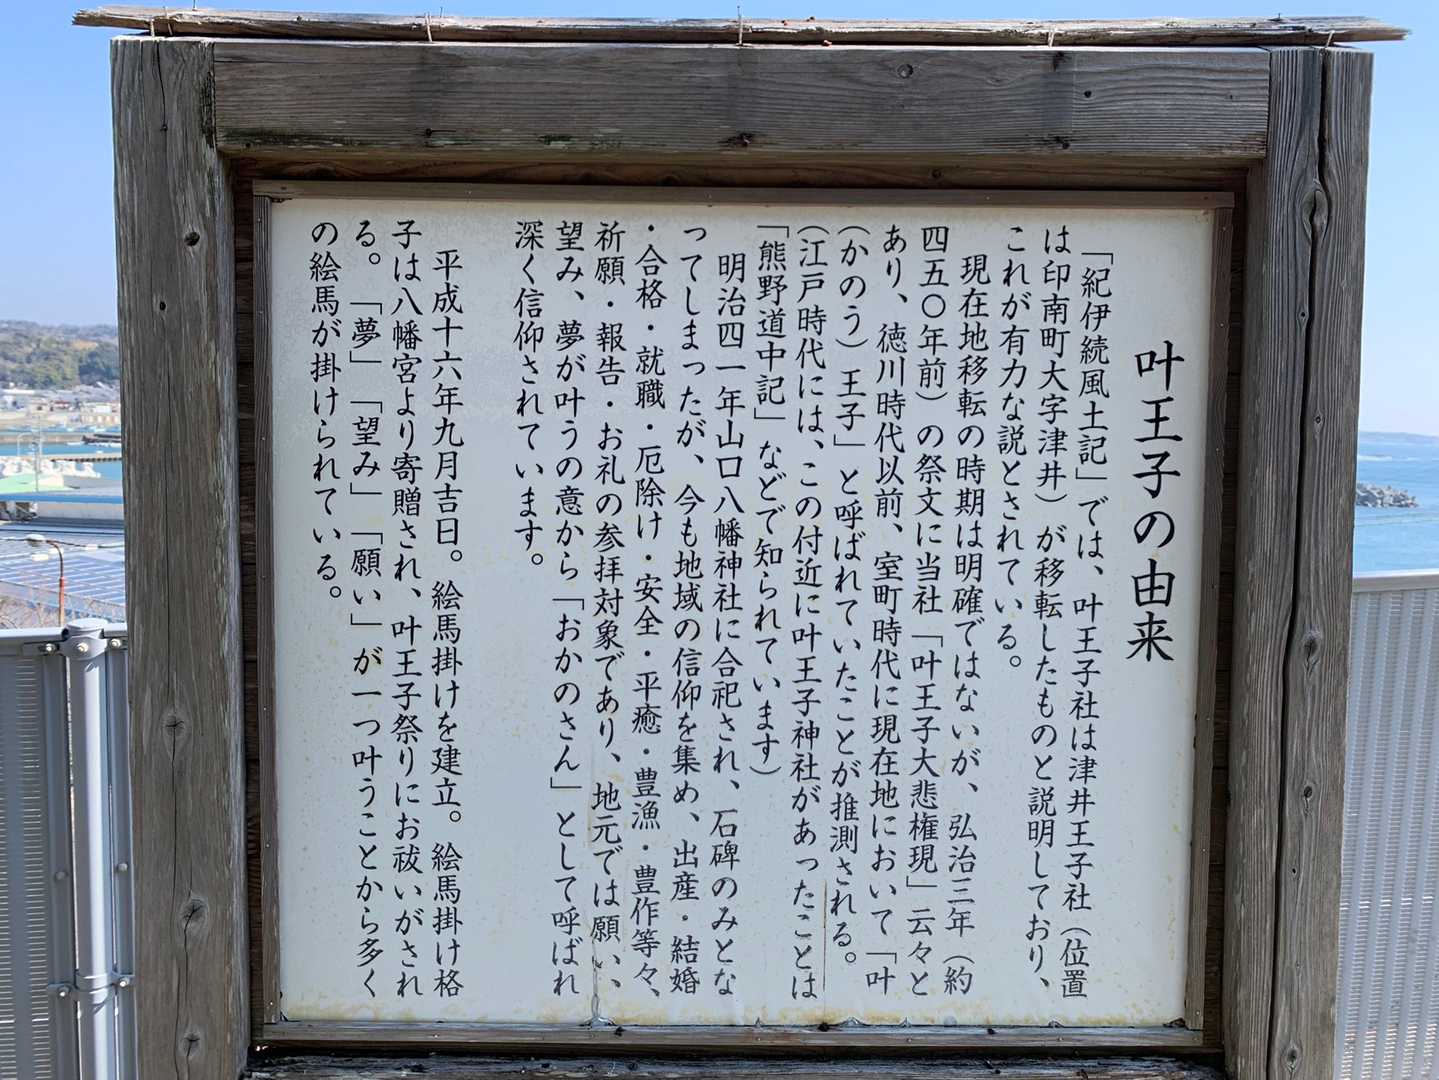 叶王子の由来
「紀伊続風土記」では、叶王子社は津井王子社（位置
は印南町大字津井）が移転したものと説明しており、
これが有力な説とされている。
現在地移転の時期は明確ではないが、弘治三年（約
四五〇年前）の祭文に当社「叶王子大悲権現」云々と
あり、徳川時代以前、室町時代に現在地において「叶
（かのう）王子」と呼ばれていたことが推測される。
（江戸時代には、この付近に叶王子神社があったことは
「熊野道中記」などで知られています）
明治四一年山口八幡神社に合祀され、石碑のみとな
ってしまったが、今も地域の信仰を集め、出産・結婚
・合格・就職・厄除け・安全・平癒・豊漁・豊作等々、
祈願・報告・お礼の参拝対象であり、地元では願い、
望み、夢が叶うの意から「おかのさん」として呼ばれ
深く信仰されています。
平成十六年九月吉日。絵馬掛けを建立。絵馬掛け格
子は八幡宮より寄贈され、叶王子祭りにお祓いがされ
る。「夢」「望み」「願い」が一つ叶うことから多く
の絵馬が掛けられている。